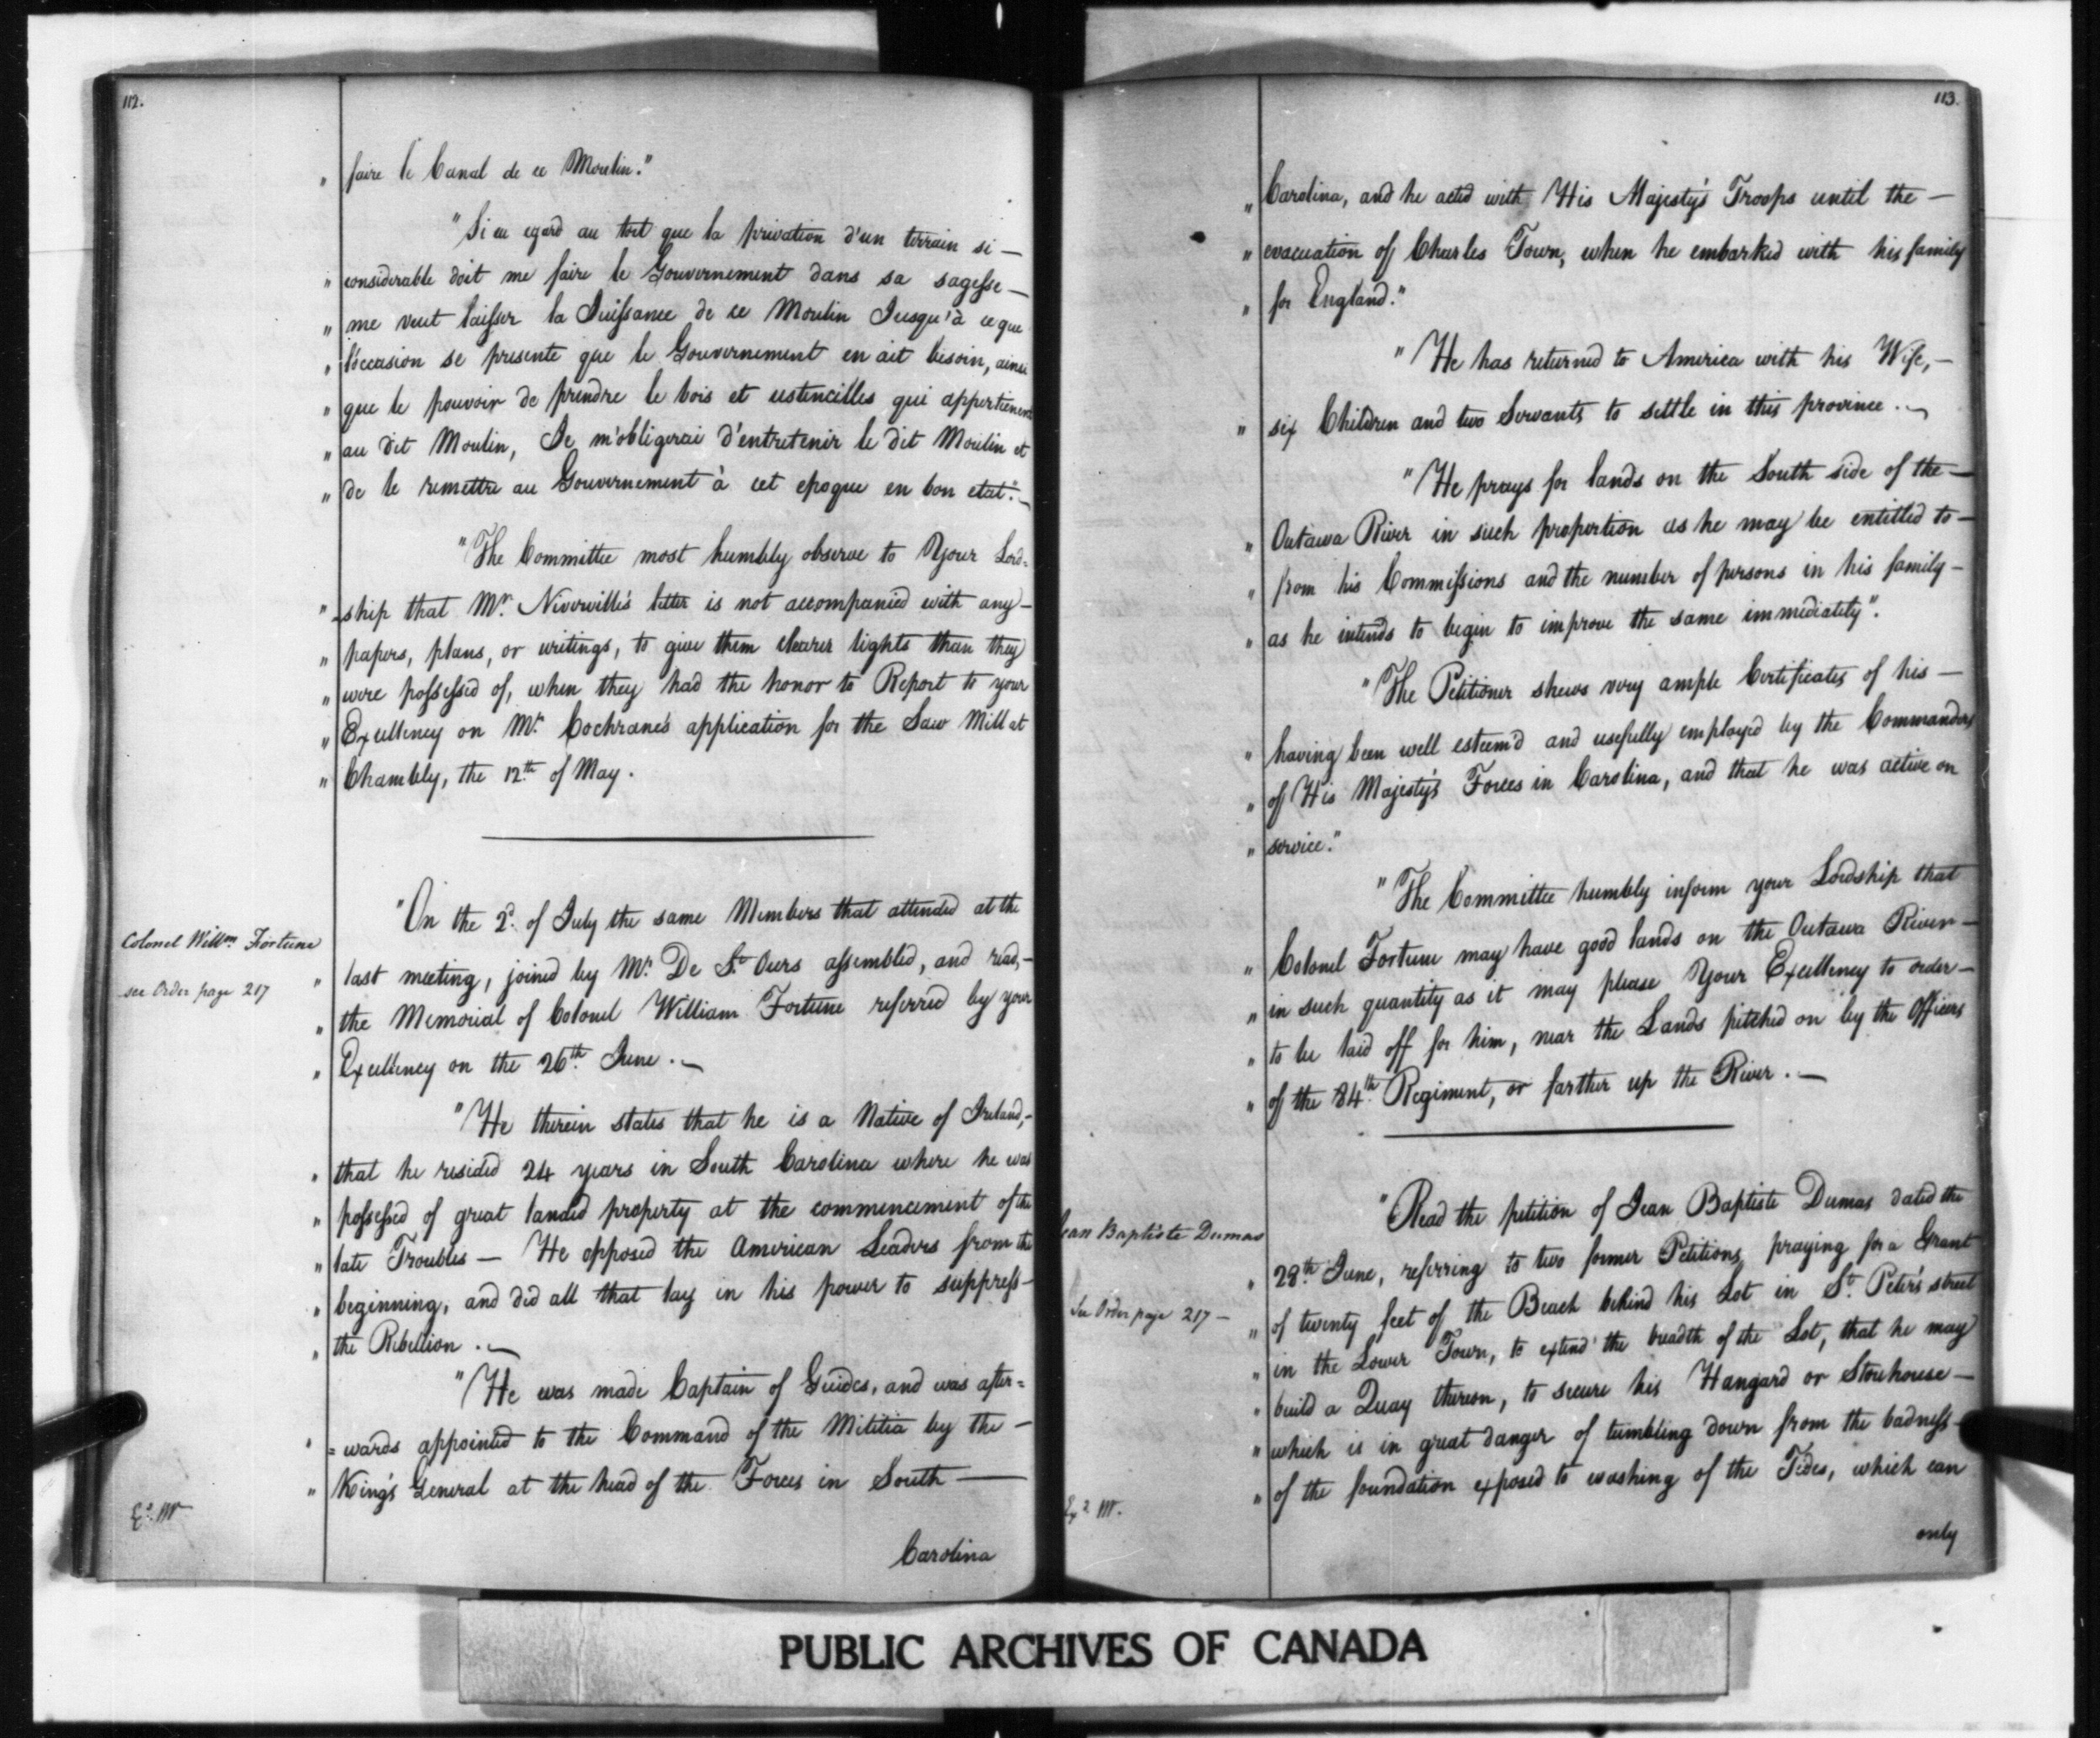 112.
" faire le Canal de ce Moulin."
"Si eu egard au tort que la privation d'un terrain si —
" considerable doit me faire le Gouvernement dans sa sagesse —
" me veut laisser la Juissance de ce Moulin Jusqu'à ce que
" l'occasion se presente que le Gouvernement en ait besoin, ainsi
" que le pouvoir de prendre le bois et ustencilles qui appertiennent
" au dit Moulin, Je m'obligerai d'entretenir le dit Moulin et
" de le remettre au Gouvernement à cet epoque en bon etat". —
"The Committee most humbly observe to Your Lord=
" =ship that Mr. Niverville's letter is not accompanied with any —
" papers, plans, or writings, to give them clearer lights than they
" were possessed of, when they had the honor to Report to your
" Excellency on Mr. Cochrane's application for the Saw Mill at
" Chambly, the 12th of May.
"On the 2d. of July the same Members that attended at the
Colonel Willm. Fortune
" last meeting, joined by Mr. De St. Ours assembled, and read, —
see Order page 217
" the Memorial of Colonel William Fortune referred by your
" Excellency on the 26th. June. —
"He therein states that he is a Native of Ireland, —
" that he resided 24 years in South Carolina where he was
" possessed of great landed property at the commencement of the
" late Troubles — He opposed the American Leaders from the
" beginning, and did all that lay in his power to suppress —
" the Rebellion. —
"He was made Captain of Guides, and was after=
" =wards appointed to the Command of the Militia by the —
" King's General at the head of the Forces in South —
Carolina
113.
" Carolina, and he acted with His Majesty's Troops until the —
" evacuation of Charles Town, when he embarked with his family
" for England."
"He has returned to America with his Wife, —
" six Children and two Servants to settle in this province. —
"He prays for lands on the South side of the —
" Outawa River in such proportion as he may be entitled to —
" from his Commissions and the number of persons in his family —
" as he intends to begin to improve the same immediately".
"The Petitioner shews very ample Certificates of his —
" having been well esteem'd and usefully employed by the Commanders
" of His Majesty's Forces in Carolina, and that he was active on
" service."
"The Committee humbly inform your Lordship that
" Colonel Fortune may have good lands on the Outawa River —
" in such quantity as it may please Your Excellency to order —
" to be laid off for him, near the Lands pitched on by the Officers
" of the 84th. Regiment, or farther up the River. —
"Read the petition of Jean Baptiste Dumas dated the
Jean Baptiste Dumas
" 28th. June, referring to two former Petitions, praying for a Grant
See Order page 217 —
" of twenty feet of the Beach behind his Lot in St. Peter's street
" in the Lower Town, to extend the breadth of the Lot, that he may
" build a Quay thereon, to secure his Hangard or Storehouse —
" which is in great danger of tumbling down from the badness —
" of the foundation exposed to washing of the Tides, which can
only
PUBLIC ARCHIVES OF CANADA